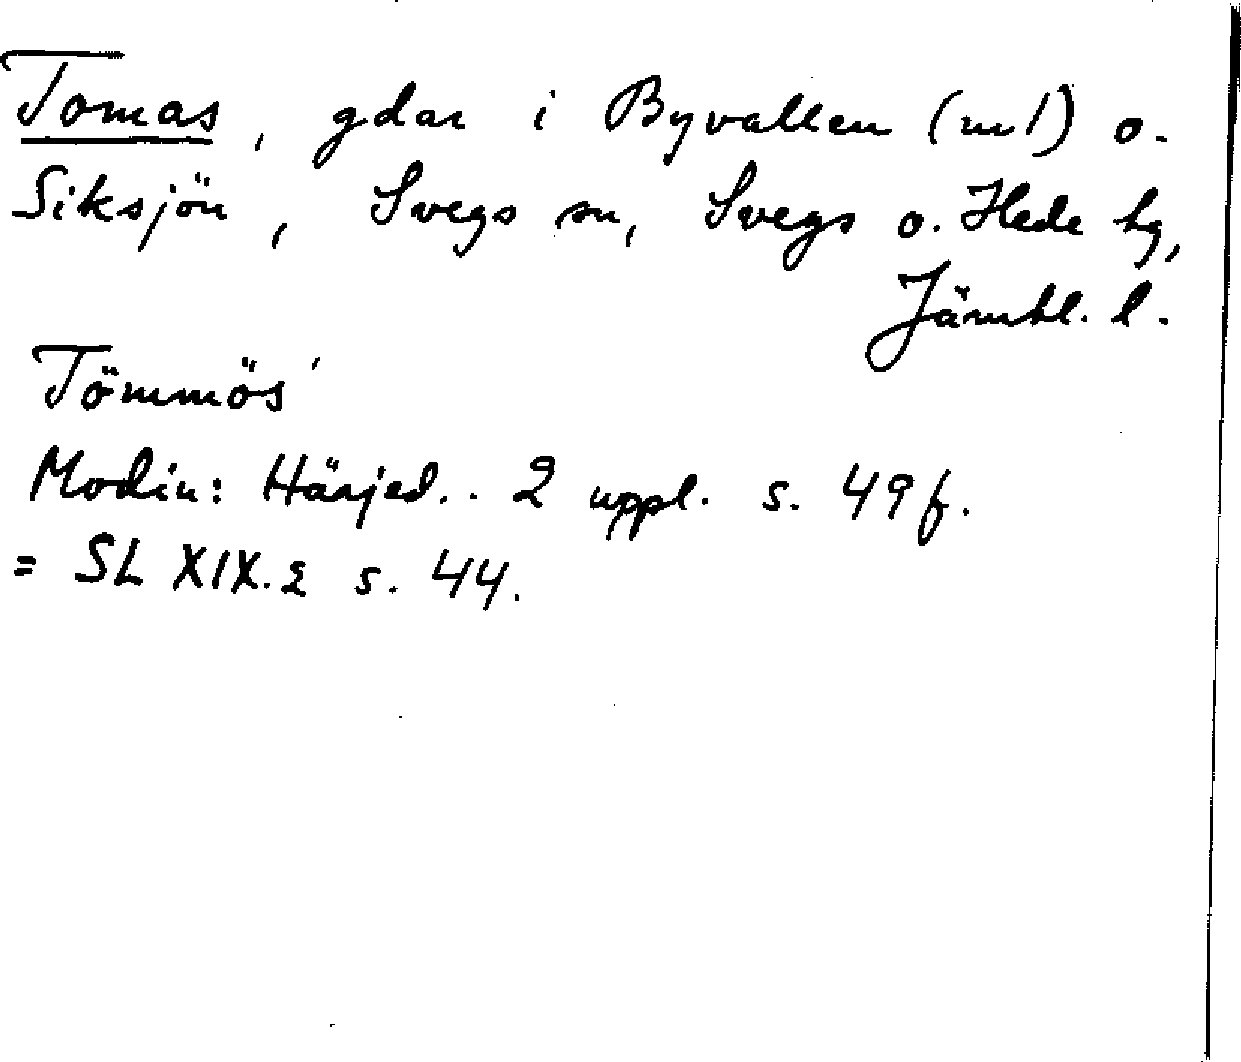 Tomas, gdar i Byvallen (nr 1) o.
Siksjön, Svegs sn, Svegs o. Hede hg,
Jämtl. l.
Tömmös'
Modin: Härjed.. 2 uppl. s. 49 f.
= SL XIX.2 s. 44.